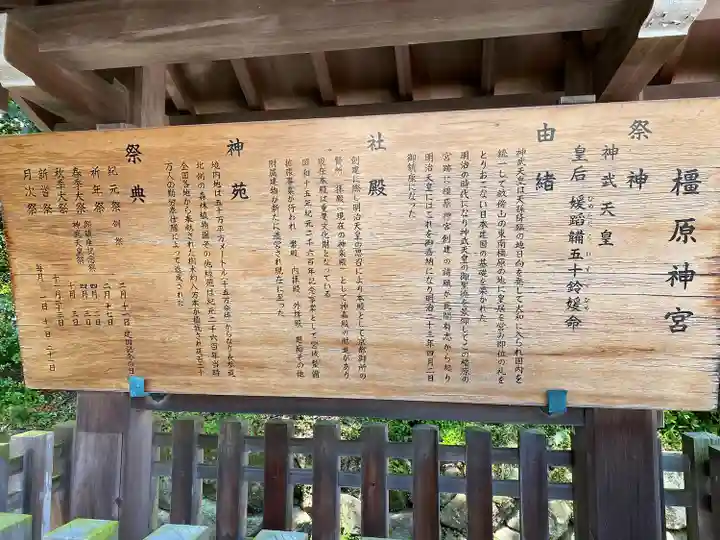 橿原神宮
祭神
神武天皇
皇后 媛蹈鞴五十鈴媛命
ひめたたらいすずひめ
由緒
神武天皇は天孫降臨の地日向を発して大和に入られ国内を
統一して畝傍山の東南橿原の地に皇居を営み即位の礼を
とりおこない日本建国の基礎を築かれた
明治の時代になり神武天皇の御聖徳を景仰してこの橿原の
宮跡に橿原神宮創建の請願が民間有志から起り
明治天皇はこれを御嘉納になり明治二十三年四月二日
御鎮座になった
社殿
創建に際し明治天皇の思召により本殿として京都御所の
賢所 拝殿(現在の神楽殿)として神嘉殿の下賜があり
現在本殿は重要文化財となっている
昭和十五年紀元二千六百年記念事業として宮域整備
拡張事業が行われ 幣殿 内拝殿 外拝殿 廻廊その他
附属建物が新たに造営され現在に至った
神苑
境内地は五十万平方メートル(十五万余坪)
北側の森林植物園その他
紀元二千六百年当時
全国各地から奉献された樹木約八万本が植栽され延百二十
万人の勤労奉仕隊によって造成された
祭典
紀元祭 例祭 二月十一日
祈年祭 二月十七日
御鎮座記念祭 四月二日
春季大祭 神武天皇祭 四月三日
秋季大祭 十月三日
新嘗祭 十一月二十三日
月次祭 毎月 一日 十一日 二十一日